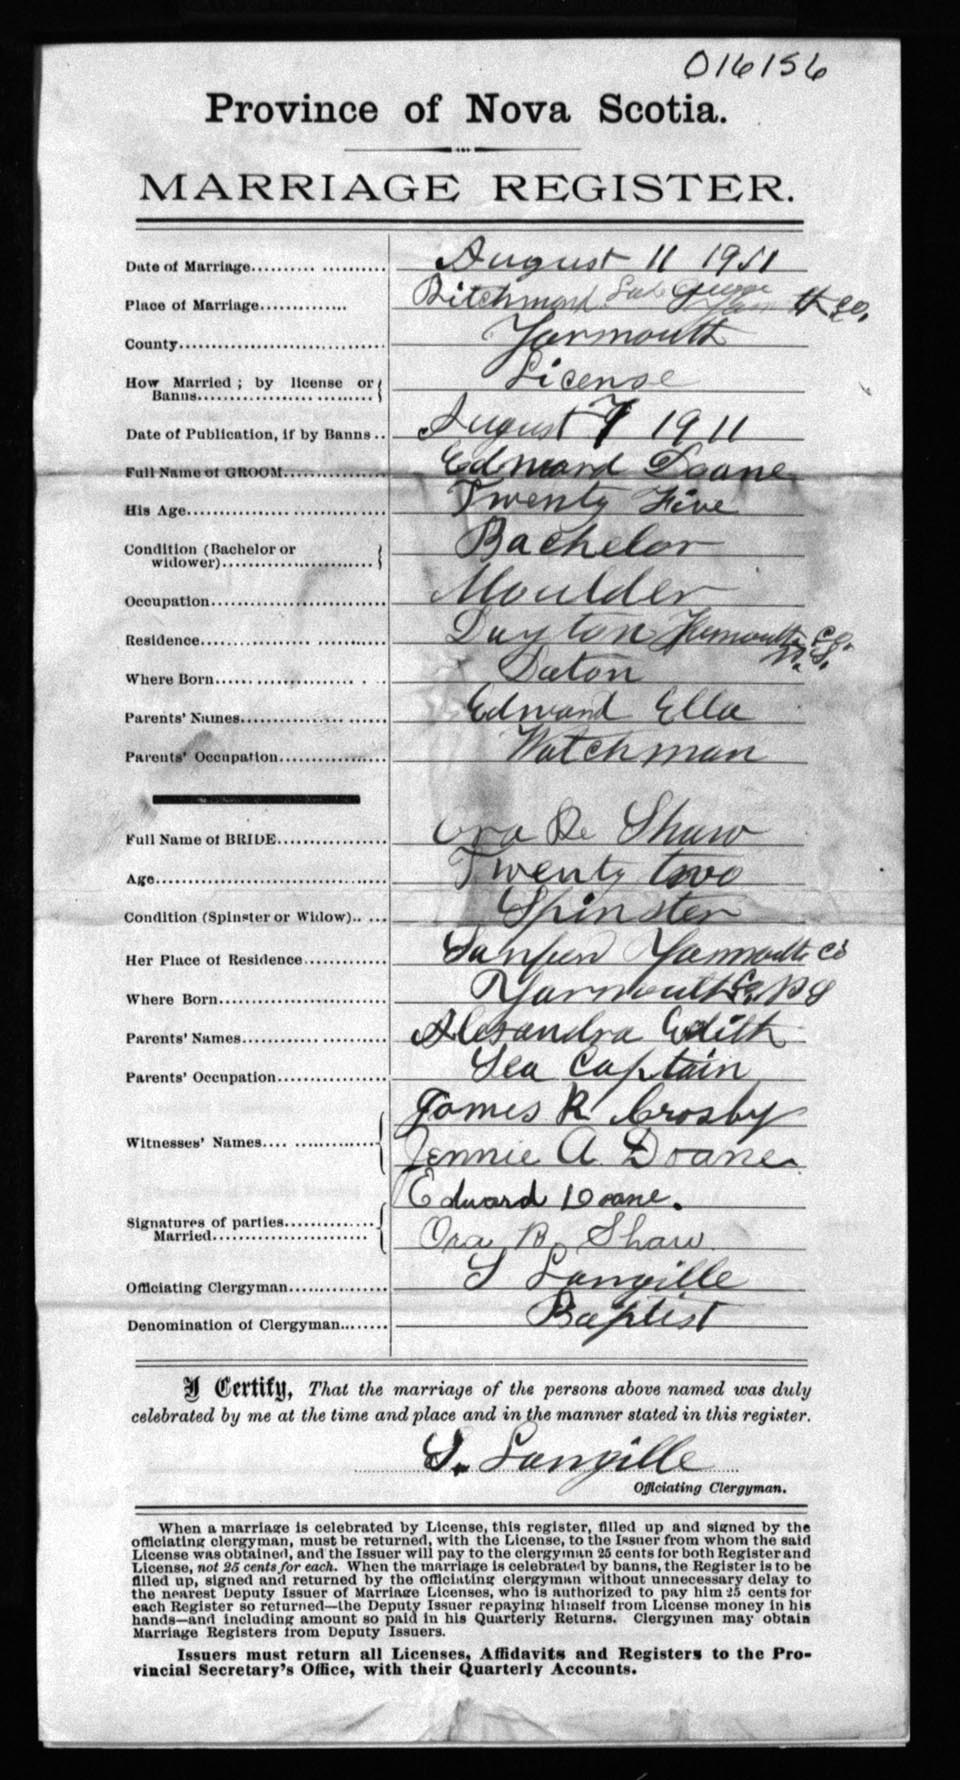 016156
Province of Nova Scotia.
MARRIAGE REGISTER.
Date of Marriage.......... August 11 1911
Place of Marriage..............
County............................... Yarmouth
How Married ; by license or Banns.................... License
Date of Publication, if by Banns.. August 7 1911
Full Name of GROOM............... Edward Doane
His Age............................. Twenty Five
Condition (Bachelor or widower)........................ Bachelor
Occupation........................... Moulder
Residence............................ Dayton Yarmouth Co. N.S.
Where Born...................... Daton
Parents' Names..................... Edward Ella
Parents' Occupation................ Watchman
Full Name of BRIDE................. Ora Be Shaw
Age.................................. Twenty two
Condition (Spinster or Widow)..... Spinster
Her Place of Residence............ Yarmouth Co
Where Born........................ Yarmouth Co, N S
Parents' Names..................... Alexandra Edith
Parents' Occupation................ Sea Captain
Witnesses' Names.... ............. James R. Crosby
Jennie A. Doane.
Signatures of parties Married...................... Edward Doane.
Ora B. Shaw.
Officiating Clergyman.............. S Langille
Denomination of Clergyman........ Baptist
I Certify, That the marriage of the persons above named was duly
celebrated by me at the time and place and in the manner stated in this register.
S. Langille
Officiating Clergyman.
When a marriage is celebrated by License, this register, filled up and signed by the
officiating clergyman, must be returned, with the License, to the Issuer from whom the said
License was obtained, and the Issuer will pay to the clergyman 25 cents for both Register and
License, not 25 cents for each. When the marriage is celebrated by banns, the Register is to be
filled up, signed and returned by the officiating clergyman without unnecessary delay to
the nearest Deputy Issuer of Marriage Licenses, who is authorized to pay him 25 cents for
each Register so returned—the Deputy Issuer repaying himself from License money in his
hands—and including amount so paid in his Quarterly Returns. Clergymen may obtain
Marriage Registers from Deputy Issuers.
Issuers must return all Licenses, Affidavits and Registers to the Pro-
vincial Secretary's Office, with their Quarterly Accounts.